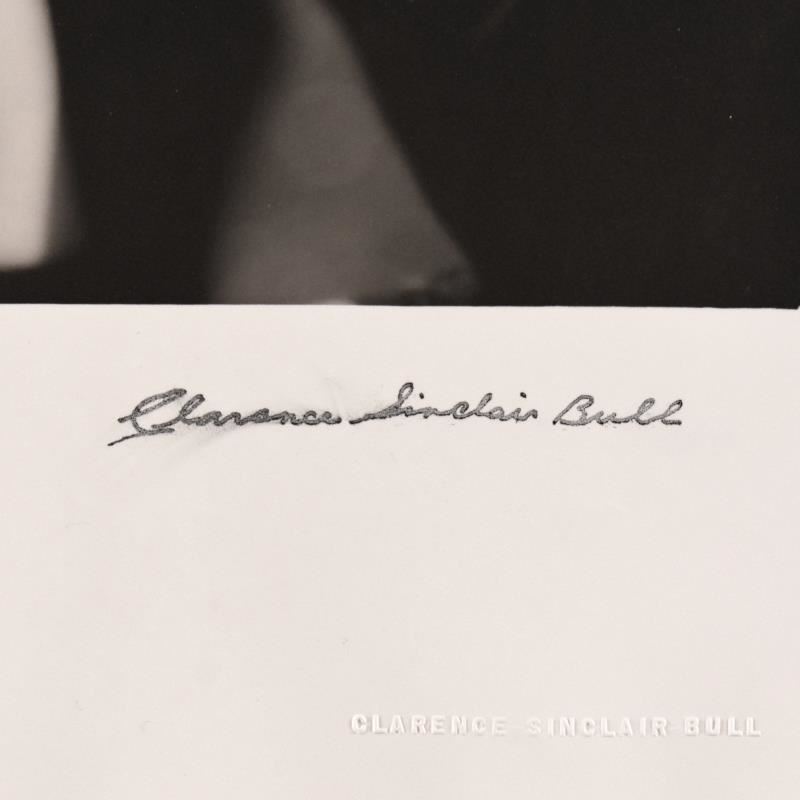 Clarence Sinclair Bull
CLARENCE SINCLAIR BULL